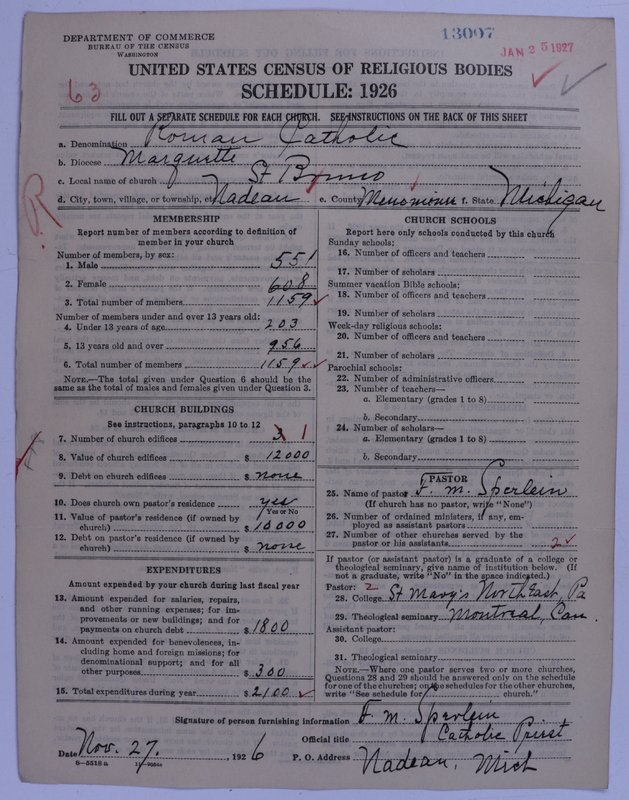 DEPARTMENT OF COMMERCE
BUREAU OF THE CENSUS
WASHINGTON
13007
JAN 25 1927
UNITED STATES CENSUS OF RELIGIOUS BODIES
SCHEDULE: 1926
63
FILL OUT A SEPARATE SCHEDULE FOR EACH CHURCH. SEE INSTRUCTIONS ON THE BACK OF THIS SHEET
a. Denomination Roman Catholic
b. Diocese Marquette
c. Local name of church St Bruno
d. City, town, village, or township, etc. Nadeau e. County Menominee f. State Michigan
R
MEMBERSHIP
Report number of members according to definition of
member in your church
Number of members, by sex:
1. Male 551
2. Female 608
3. Total number of members 1159
Number of members under and over 13 years old:
4. Under 13 years of age 203
5. 13 years old and over 956
6. Total number of members 1159
NOTE.—The total given under Question 6 should be the
same as the total of males and females given under Question 3.
CHURCH BUILDINGS
See instructions, paragraphs 10 to 12
7. Number of church edifices 3 1
8. Value of church edifices $ 12000
9. Debt on church edifices $ none
10. Does church own pastor's residence yes
Yes or No
11. Value of pastor's residence (if owned by
church) $ 10000
12. Debt on pastor's residence (if owned by
church) $ none
EXPENDITURES
Amount expended by your church during last fiscal year
13. Amount expended for salaries, repairs,
and other running expenses; for im-
provements or new buildings; and for
payments on church debt $ 1800
14. Amount expended for benevolences, in-
cluding home and foreign missions; for
denominational support; and for all
other purposes $ 300
15. Total expenditures during year $ 2100
CHURCH SCHOOLS
Report here only schools conducted by this church
Sunday schools:
16. Number of officers and teachers
17. Number of scholars
Summer vacation Bible schools:
18. Number of officers and teachers
19. Number of scholars
Week-day religious schools:
20. Number of officers and teachers
21. Number of scholars
Parochial schools:
22. Number of administrative officers
23. Number of teachers—
a. Elementary (grades 1 to 8)
b. Secondary
24. Number of scholars—
a. Elementary (grades 1 to 8)
b. Secondary
PASTOR
25. Name of pastor F. M. Sperlein
(If church has no pastor, write "None")
26. Number of ordained ministers, if any, em-
ployed as assistant pastors
27. Number of other churches served by the
pastor or his assistants 2
If pastor (or assistant pastor) is a graduate of a college or
theological seminary, give name of institution below. (If
not a graduate, write "No" in the space indicated.)
Pastor: 2
28. College St Mary's North East, Pa
29. Theological seminary Montreal, Can.
Assistant pastor:
30. College
31. Theological seminary
NOTE.—Where one pastor serves two or more churches,
Questions 28 and 29 should be answered only on the schedule
for one of the churches; on the schedules for the other churches,
write "See schedule for church."
Signature of person furnishing information F. M. Sperlein
Official title Catholic Priest
Date Nov. 27, 1926 P. O. Address Nadeau, Mich
8—5518a